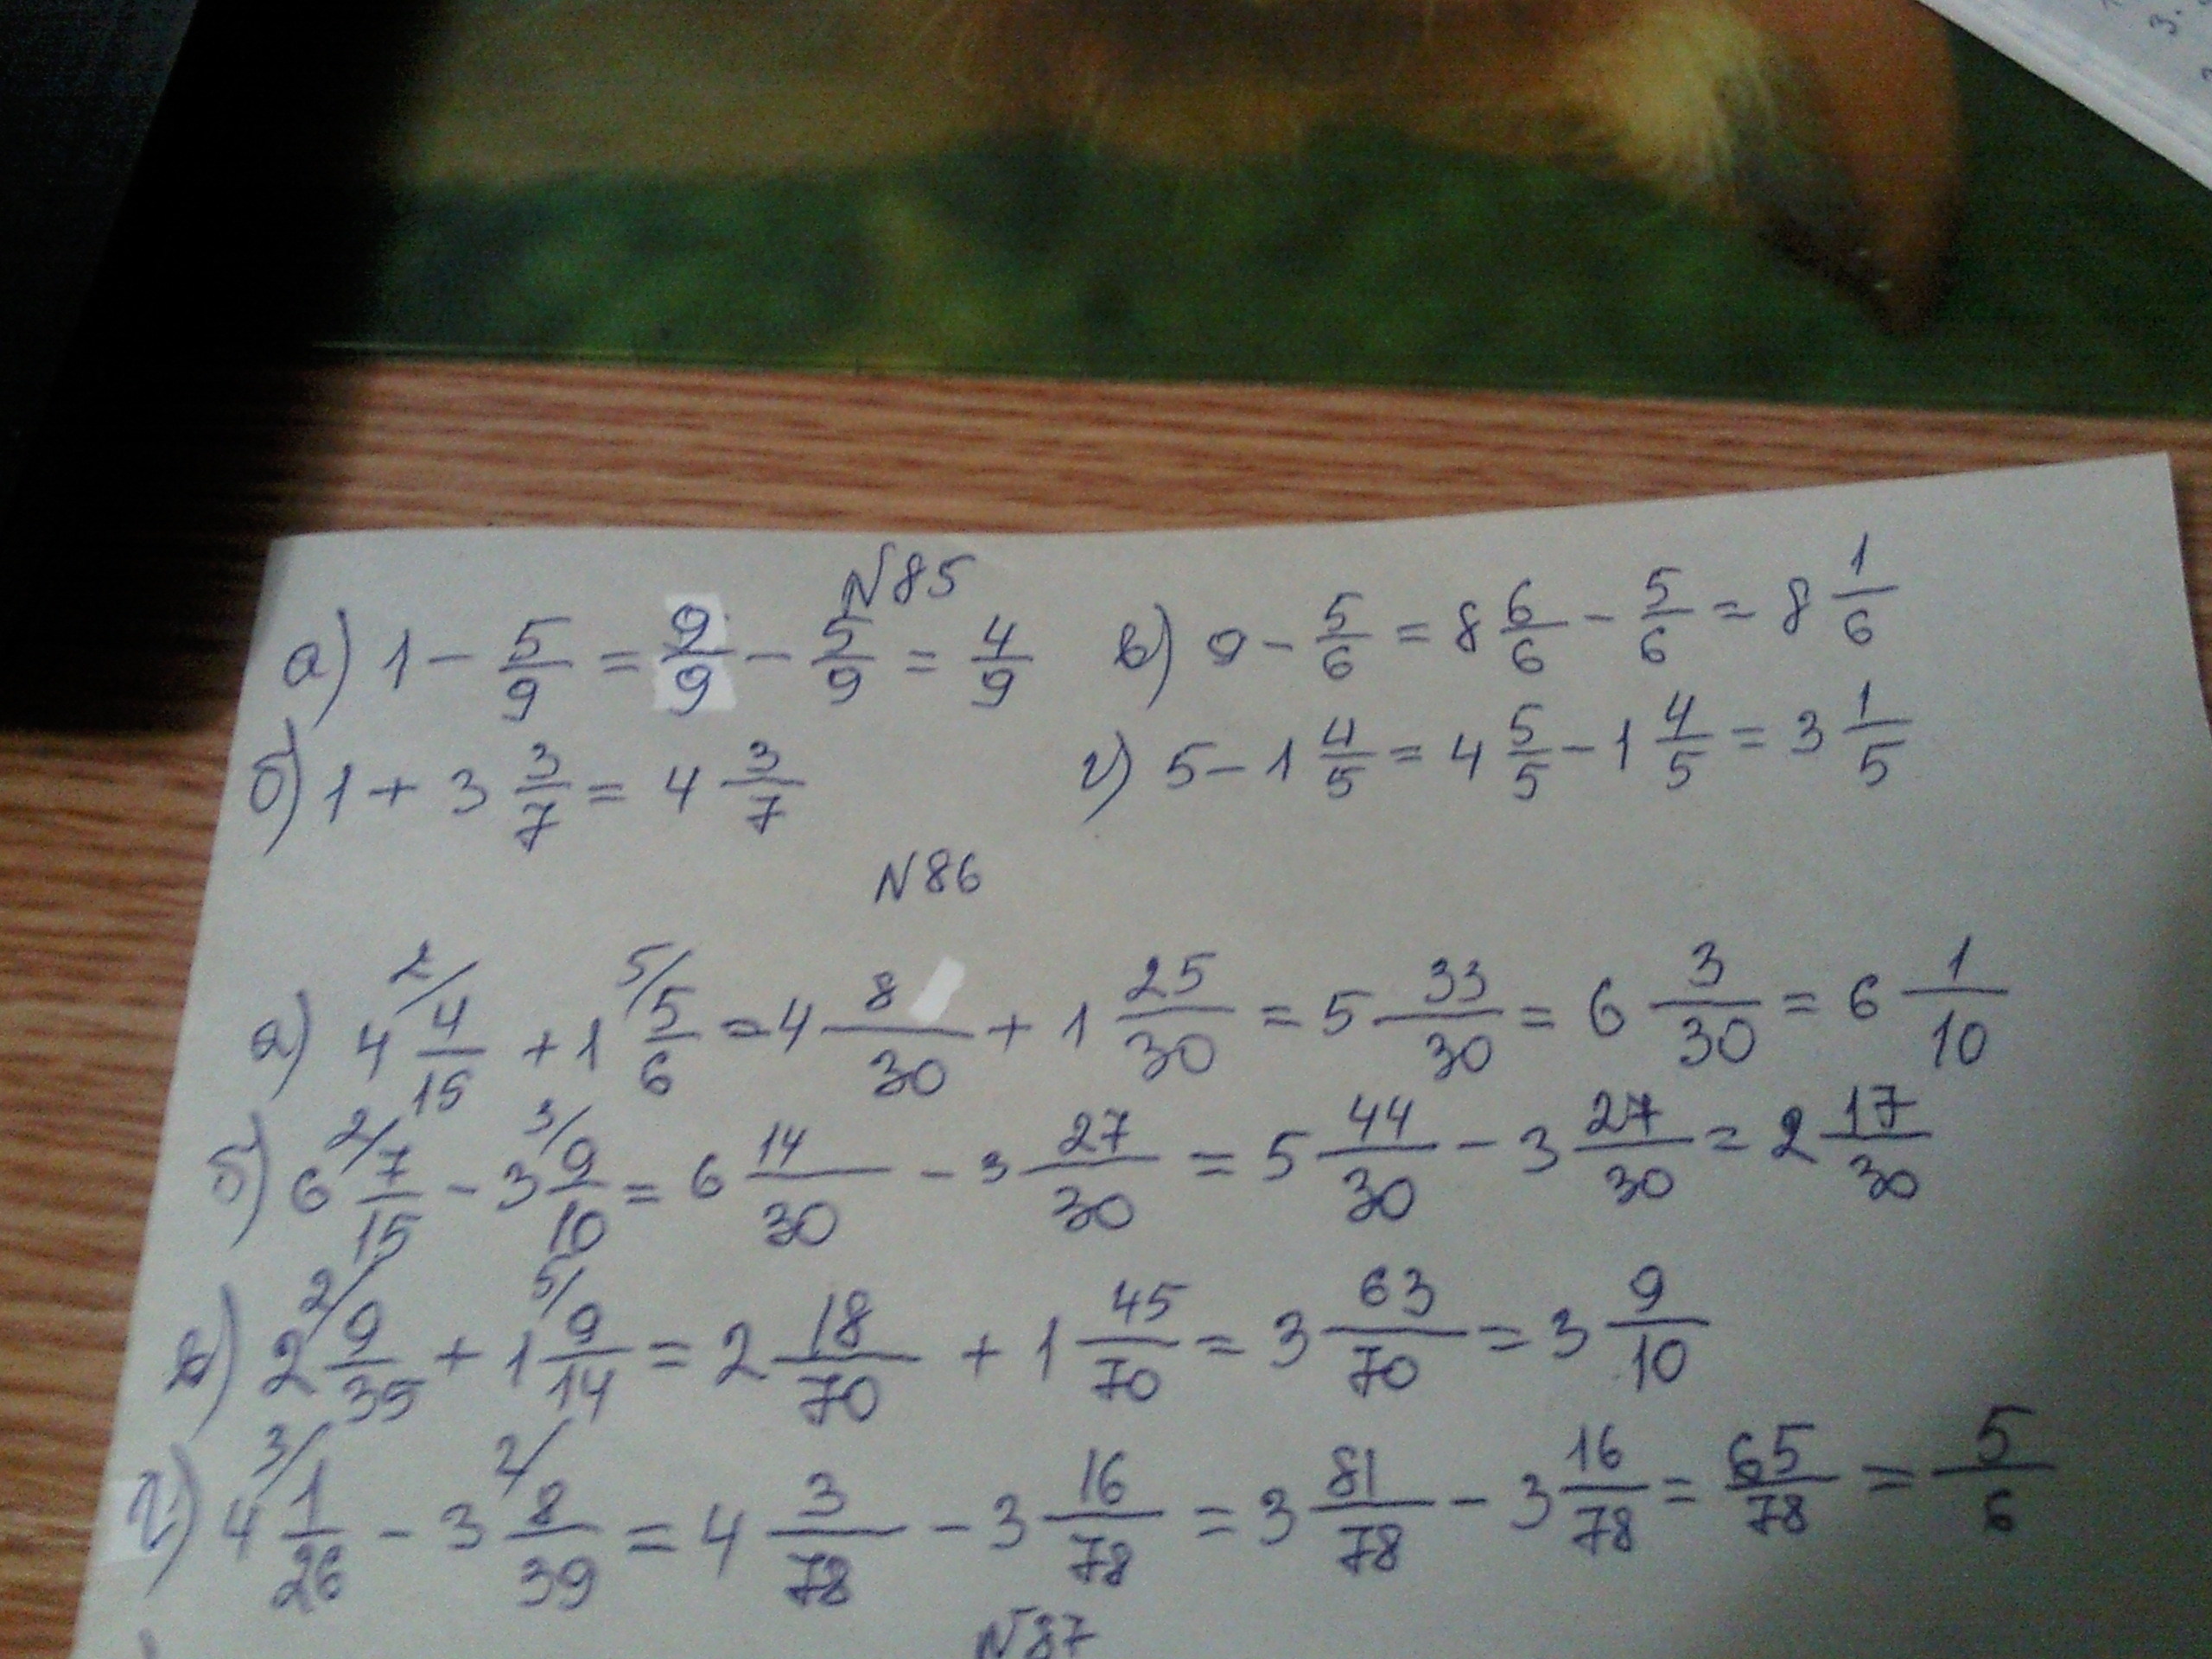 N85
а) 1 - 5/9 = 9/9 - 5/9 = 4/9
в) 9 - 5/6 = 8 6/6 - 5/6 = 8 1/6
б) 1 + 3 3/7 = 4 3/7
г) 5 - 1 4/5 = 4 5/5 - 1 4/5 = 3 1/5
N86
а) 4 2/ 4/15 + 1 5/ 5/6 = 4 8/30 + 1 25/30 = 5 33/30 = 6 3/30 = 6 1/10
б) 6 2/ 7/15 - 3 3/ 9/10 = 6 14/30 - 3 27/30 = 5 44/30 - 3 27/30 = 2 17/30
в) 2 2/ 9/35 + 1 5/ 9/14 = 2 18/70 + 1 45/70 = 3 63/70 = 3 9/10
г) 4 3/ 1/26 - 3 2/ 8/39 = 4 3/78 - 3 16/78 = 3 81/78 - 3 16/78 = 65/78 = 5/6
N87